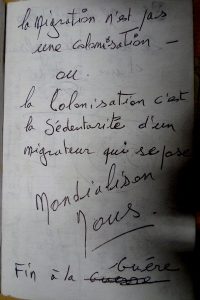 la Migration n'est pas
une colonisation —
ou.
la Colonisation c'est
la Sédentarité d'un
migrateur qui se pose
Mondialison
Nous.
Fin à la Guère
Guerre